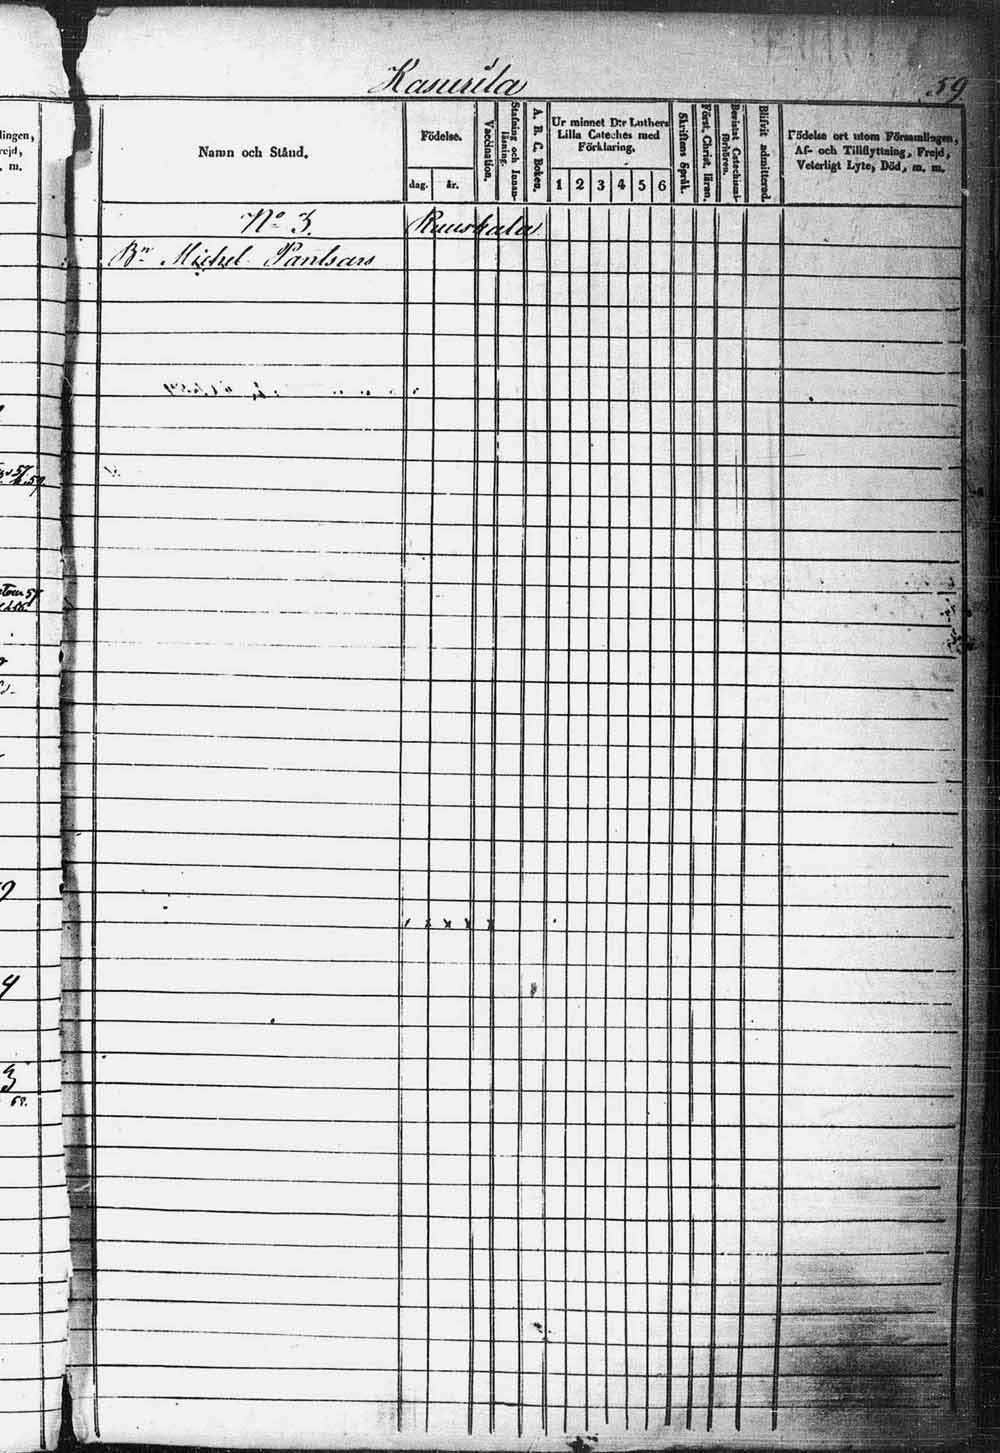 Kasurila
59
Namn och Stånd.
Födelse.
dag.
år.
Vaccination.
Stafning och Innan-
läsning.
A. B. C. Boken.
Ur minnet D:r Luthers
Lilla Cateches med
Förklaring.
1 2 3 4 5 6
Skriftens Språk.
Först. Christ. läran.
Bevistat Catechismi-
förhören.
Blifvit admitterad.
Födelse ort utom Församlingen,
Af- och Tillflyttning, Frejd,
Veterligt Lyte, Död, m. m.
lingen,
rejd,
m.
No 3. Ruuskala
Bn Michel Pantsars
59
3